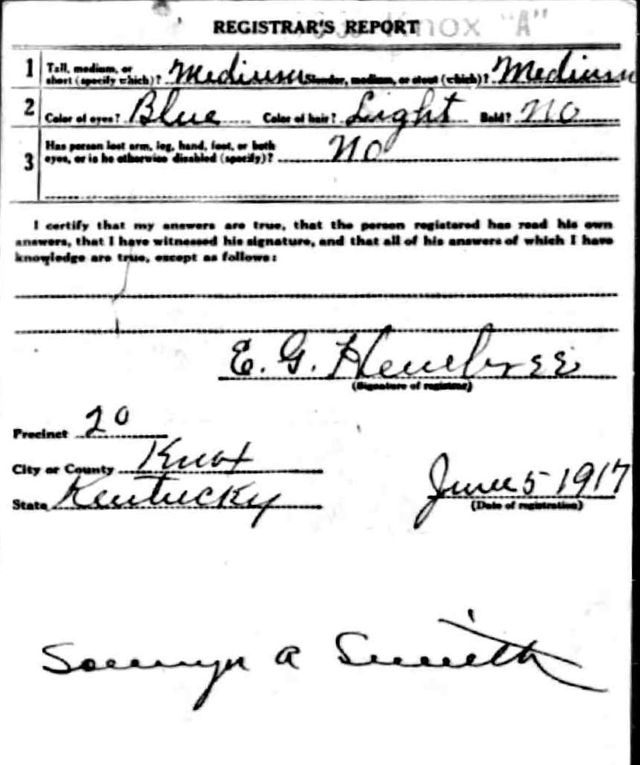 Knox "A"
REGISTRAR'S REPORT
1 Tall, medium, or short (specify which)? Medium Slender, medium, or stout (which)? Medium
2 Color of eyes? Blue Color of hair? Light Bald? No
3 Has person lost arm, leg, hand, foot, or both eyes, or is he otherwise disabled (specify)? No
I certify that my answers are true, that the person registered has read his own
answers, that I have witnessed his signature, and that all of his answers of which I have
knowledge are true, except as follows:
E. G. Hembree
(Signature of registrar)
Precinct 20
City or County Knox
State Kentucky
June 5 1917
(Date of registration)
A Smith